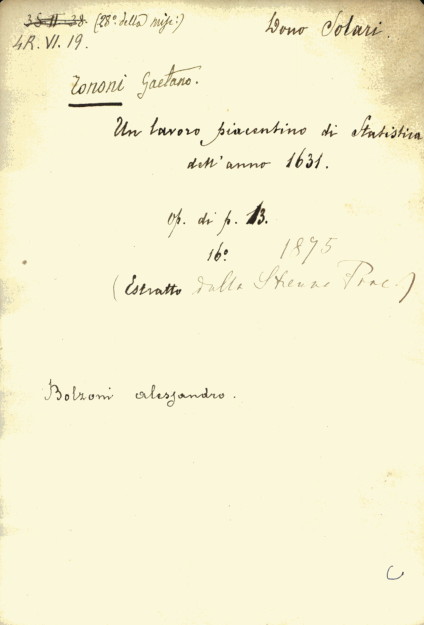 35.II.38. (28º della misc:)
4R.VI.19.
Dono Solari.
Tononi Gaetano.
Un lavoro piacentino di Statistica
dell'anno 1631.
Op. di p. 13.
16º 1875
(Estratto dalla Strenna Piac.)
Bolzoni Alessandro.
C